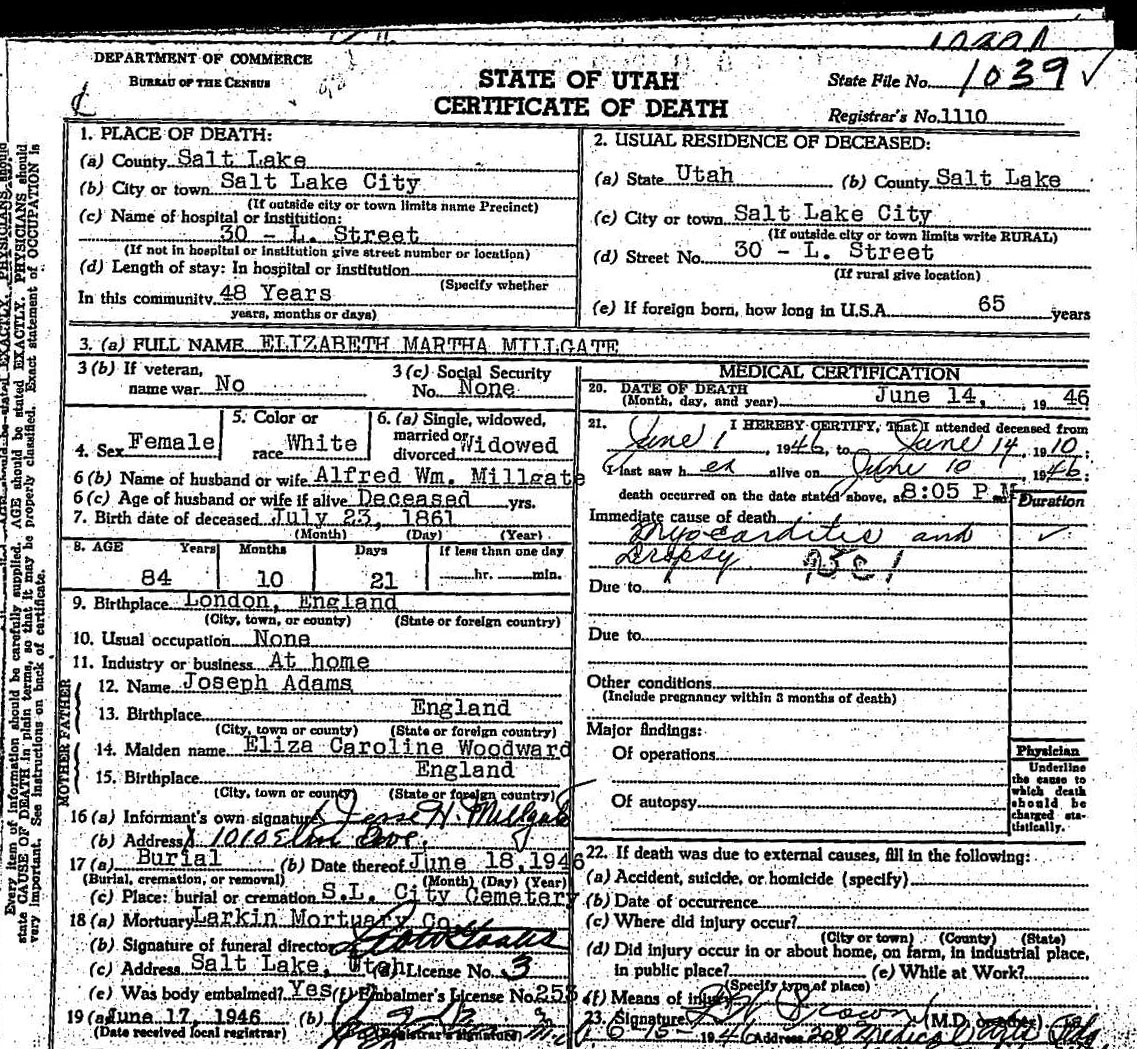 DEPARTMENT OF COMMERCE
BUREAU OF THE CENSUS
STATE OF UTAH
CERTIFICATE OF DEATH
State File No. 1039 ✓
Registrar's No. 1110
1. PLACE OF DEATH:
(a) County Salt Lake
(b) City or town Salt Lake City
(If outside city or town limits name Precinct)
(c) Name of hospital or institution:
30 - L. Street
(If not in hospital or institution give street number or location)
(d) Length of stay: In hospital or institution
(Specify whether
In this community 48 Years
years, months or days)
2. USUAL RESIDENCE OF DECEASED:
(a) State Utah (b) County Salt Lake
(c) City or town Salt Lake City
(If outside city or town limits write RURAL)
(d) Street No. 30 - L. Street
(If rural give location)
(e) If foreign born, how long in U.S.A. 65 years
3. (a) FULL NAME ELIZABETH MARTHA MILLGATE
3 (b) If veteran,
name war No
3 (c) Social Security
No. None
4. Sex Female
5. Color or
race White
6. (a) Single, widowed,
married or
divorced Widowed
6 (b) Name of husband or wife Alfred Wm. Millgate
6 (c) Age of husband or wife if alive Deceased yrs.
7. Birth date of deceased July 23, 1861
(Month) (Day) (Year)
8. AGE Years Months Days If less than one day
84 10 21 hr. min.
9. Birthplace London, England
(City, town, or county) (State or foreign country)
10. Usual occupation None
11. Industry or business At home
FATHER
12. Name Joseph Adams
13. Birthplace England
(City, town or county) (State or foreign country)
MOTHER
14. Maiden name Eliza Caroline Woodward
15. Birthplace England
(City, town or county) (State or foreign country)
16 (a) Informant's own signature Jesse H. Millgate
(b) Address 1010 Elm Ave.
17 (a) Burial (b) Date thereof June 18, 1946
(Burial, cremation, or removal) (Month) (Day) (Year)
(c) Place: burial or cremation S.L. City Cemetery
18 (a) Mortuary Larkin Mortuary Co
(b) Signature of funeral director
(c) Address Salt Lake, Utah (d) License No. 3
(e) Was body embalmed? Yes (f) Embalmer's License No. 255
19 (a) June 17, 1946 (b)
(Date received local registrar) (Registrar's signature)
MEDICAL CERTIFICATION
20. DATE OF DEATH
(Month, day, and year) June 14, , 19 46
21. I HEREBY CERTIFY, That I attended deceased from
June 1, 1946, to June 14, 1910;
I last saw her alive on June 10, 1946;
death occurred on the date stated above, at 8:05 P M
Duration
Immediate cause of death
Myocarditis and ✓
Dropsy
Due to
Due to
Other conditions
(Include pregnancy within 3 months of death)
Major findings:
Of operations
Of autopsy
Physician
Underline
the cause to
which death
should be
charged sta-
tistically.
22. If death was due to external causes, fill in the following:
(a) Accident, suicide, or homicide (specify)
(b) Date of occurrence
(c) Where did injury occur?
(City or town) (County) (State)
(d) Did injury occur in or about home, on farm, in industrial place,
in public place? (e) While at Work?
(Specify type of place)
(f) Means of injury
23. Signature Brown (M.D. or other)
6-15-1946 Address 208 Medical
Every item of information should be carefully supplied. AGE should be stated EXACTLY. PHYSICIANS should
state CAUSE OF DEATH in plain terms, so that it may be properly classified. Exact statement of OCCUPATION is
very important. See instructions on back of certificate.